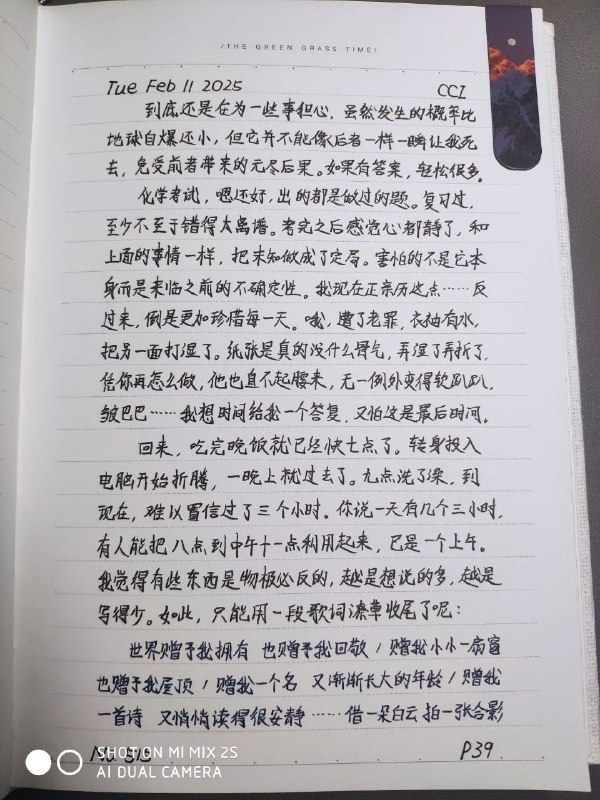 /THE GREEN GRASS TIME/
Tue Feb 11 2025 CCI
到底还是在为一些事担心，虽然发生的概率比
地球自爆还小，但它并不能像后者一样一瞬让我死
去，免受前者带来的无尽后果。如果有答案，轻松很多。
化学考试，嗯还好，出的都是做过的题。复习过，
至少不至于错得太离谱。考完之后感觉心都静了，和
上面的事情一样，把未知做成了定局。害怕的不是它本
身而是来临之前的不确定性。我现在正亲历这点……反
过来，倒是更加珍惜每一天。哦，遭了老罪，衣袖有水，
把另一面打湿了。纸张是真的没什么骨气，弄湿了弄折了，
凭你再怎么做，他也直不起腰来，无一例外变得软趴趴，
皱巴巴……我想时间给我一个答复，又怕这是最后时间。
回来，吃完晚饭就已经快七点了。转身投入
电脑开始折腾，一晚上就过去了。九点洗了澡，到
现在，难以置信过了三个小时。你说一天有几个三小时，
有人能把八点到中午十一点利用起来，已是一个上午。
我觉得有些东西是物极必反的，越是想说的多，越是
写得少。如此，只能用一段歌词潦草收尾了呢：
世界赠予我拥有 也赠予我回敬 / 赠我小小一扇窗
也赠予我屋顶 / 赠我一个名 又渐渐长大的年龄 / 赠我
一首诗 又悄悄读得很安静……借一朵白云 拍一张合影
P39
SHOT ON MI MIX 2S
AI DUAL CAMERA